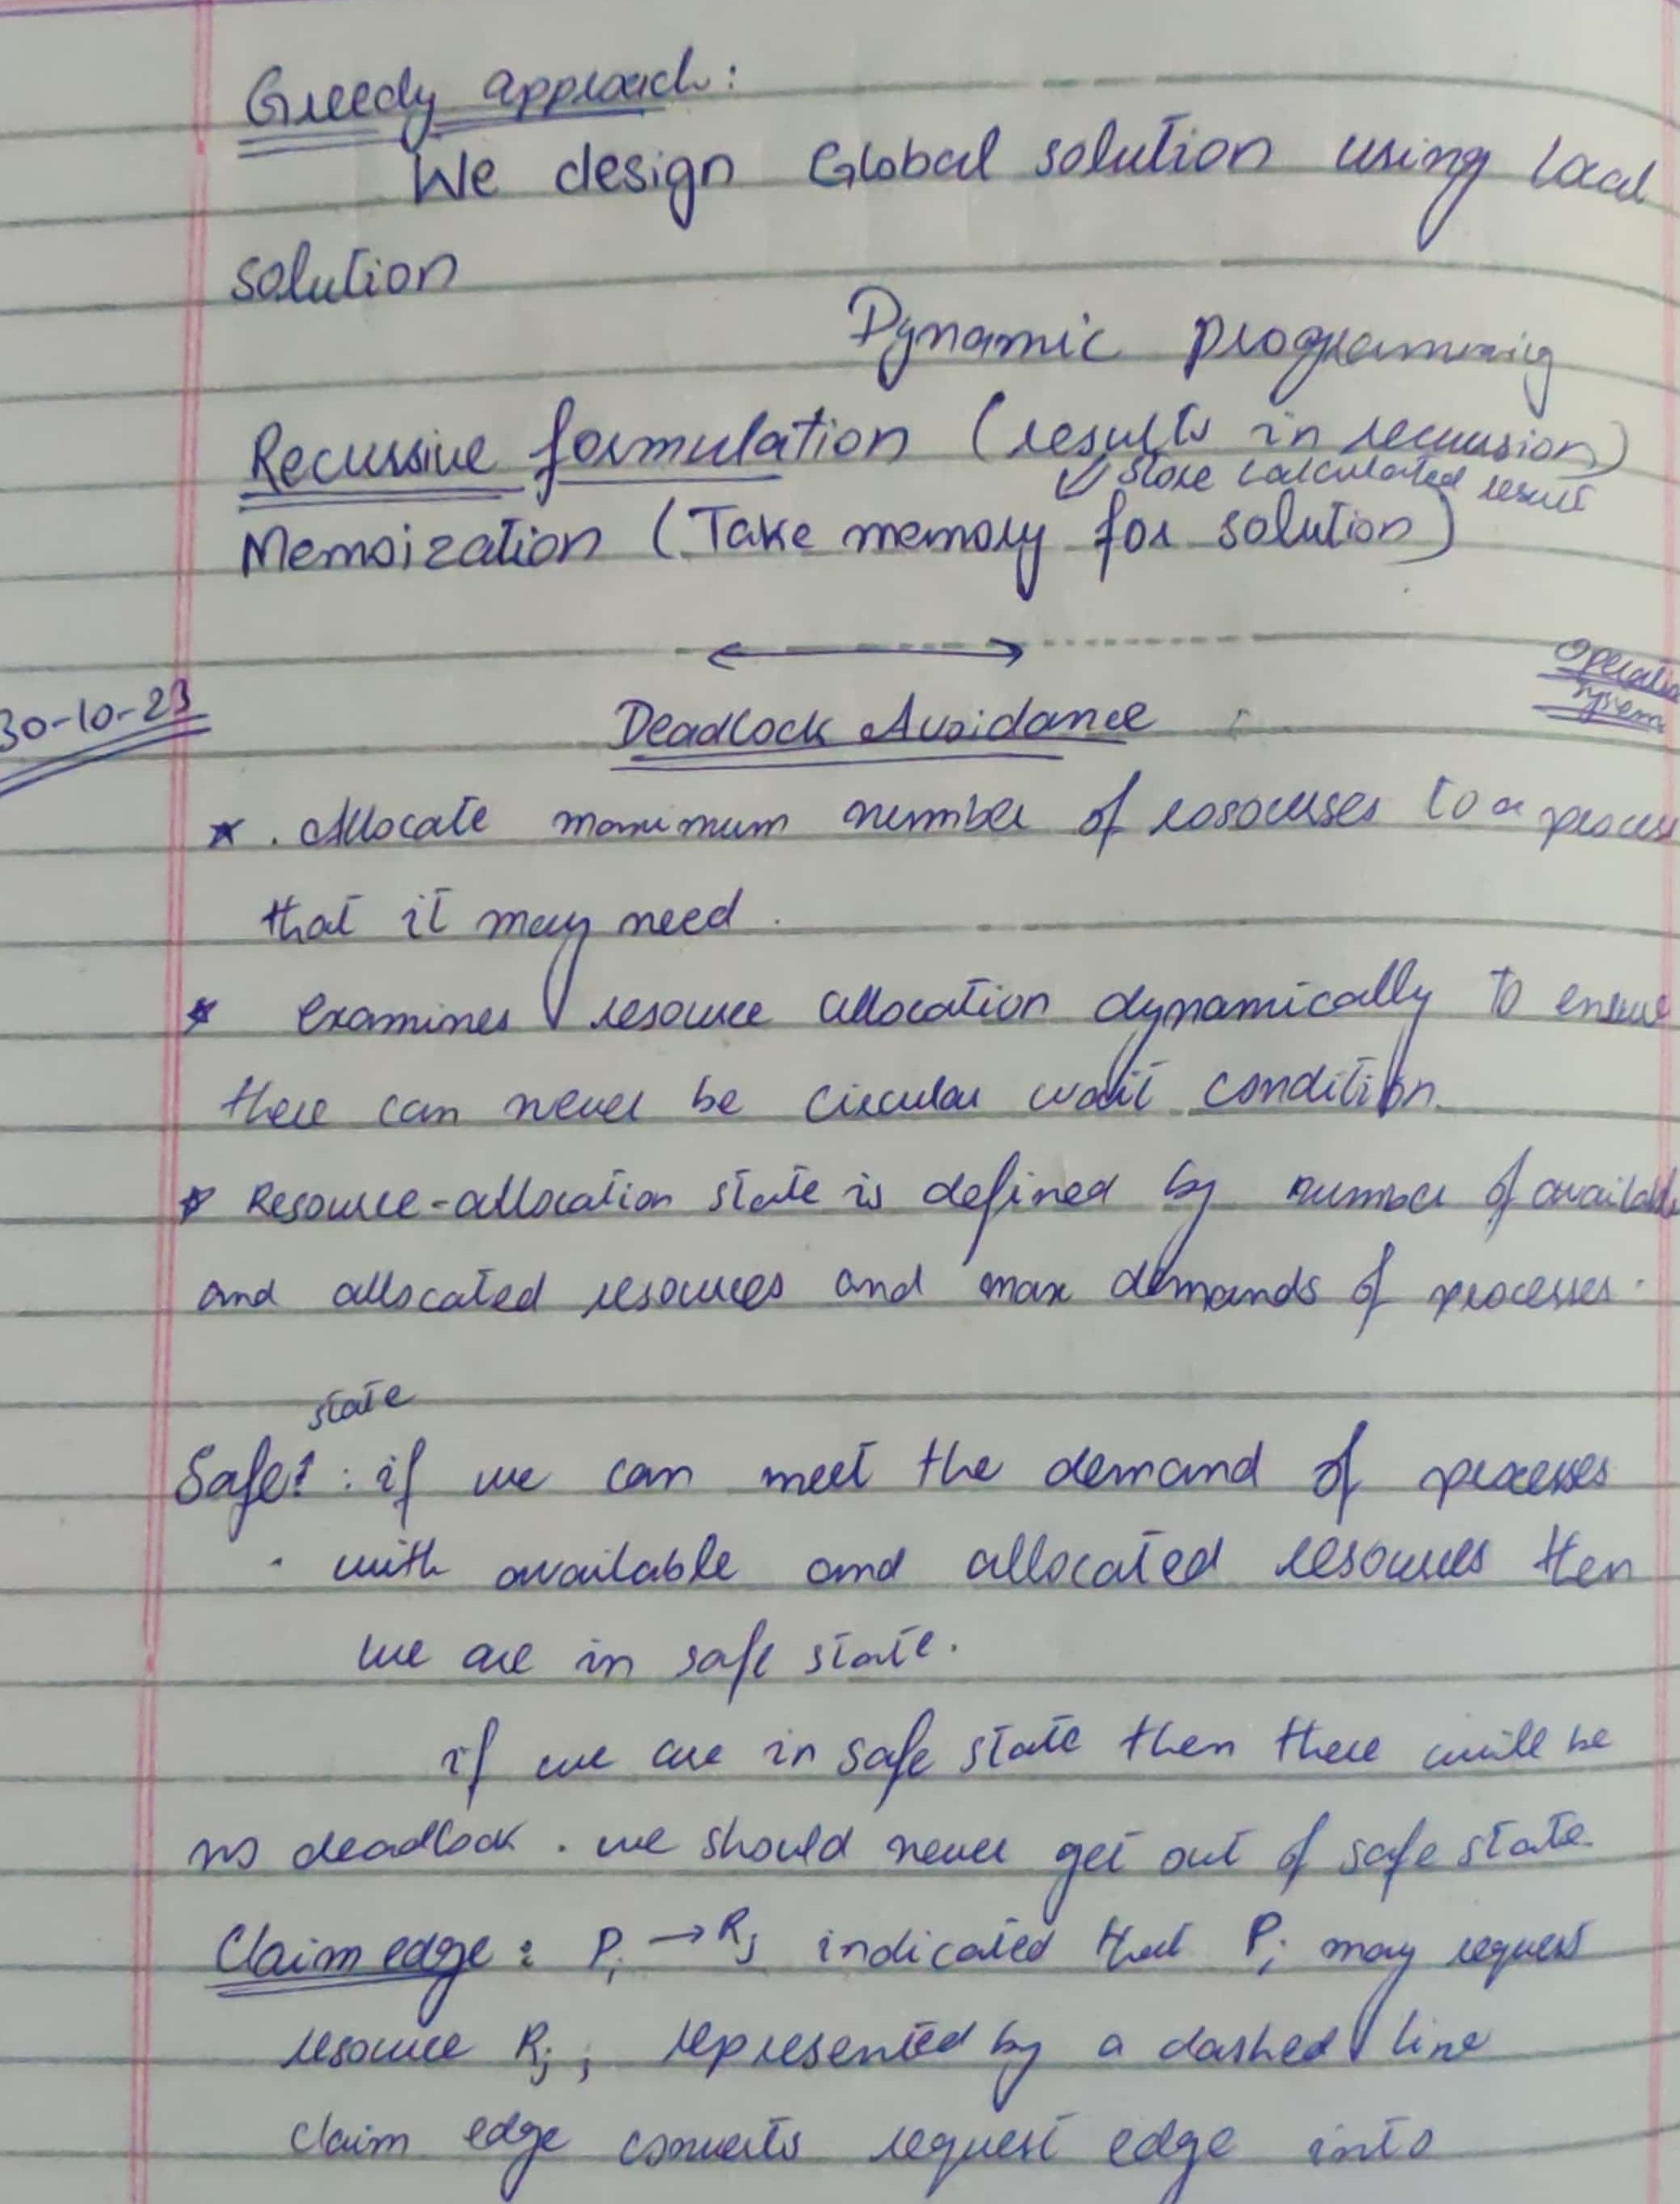 Greedy approach:
We design Global solution using local
solution
Dynamic programming
Recursive formulation (results in recursion)
store calculated result
Memoization (Take memory for solution)
Operatin
System
30-10-23
Deadlock Avoidance
★ . Allocate maximum number of rosocurses to a process
that it may need.
★ examines resource allocation dynamically to ensure
there can never be circular wait condition.
★ Resource-allocation state is defined by number of available
and allocated resources and max demands of processes.
state
Safe↑ : if we can meet the demand of processes
with available and allocated resources then
we are in safe state.
if we are in safe state then there will be
no deadlock. we should never get out of safe state
Claim edge: Pi → Rj indicated that Pi may request
resource Rj; represented by a dashed line
claim edge converts request edge into